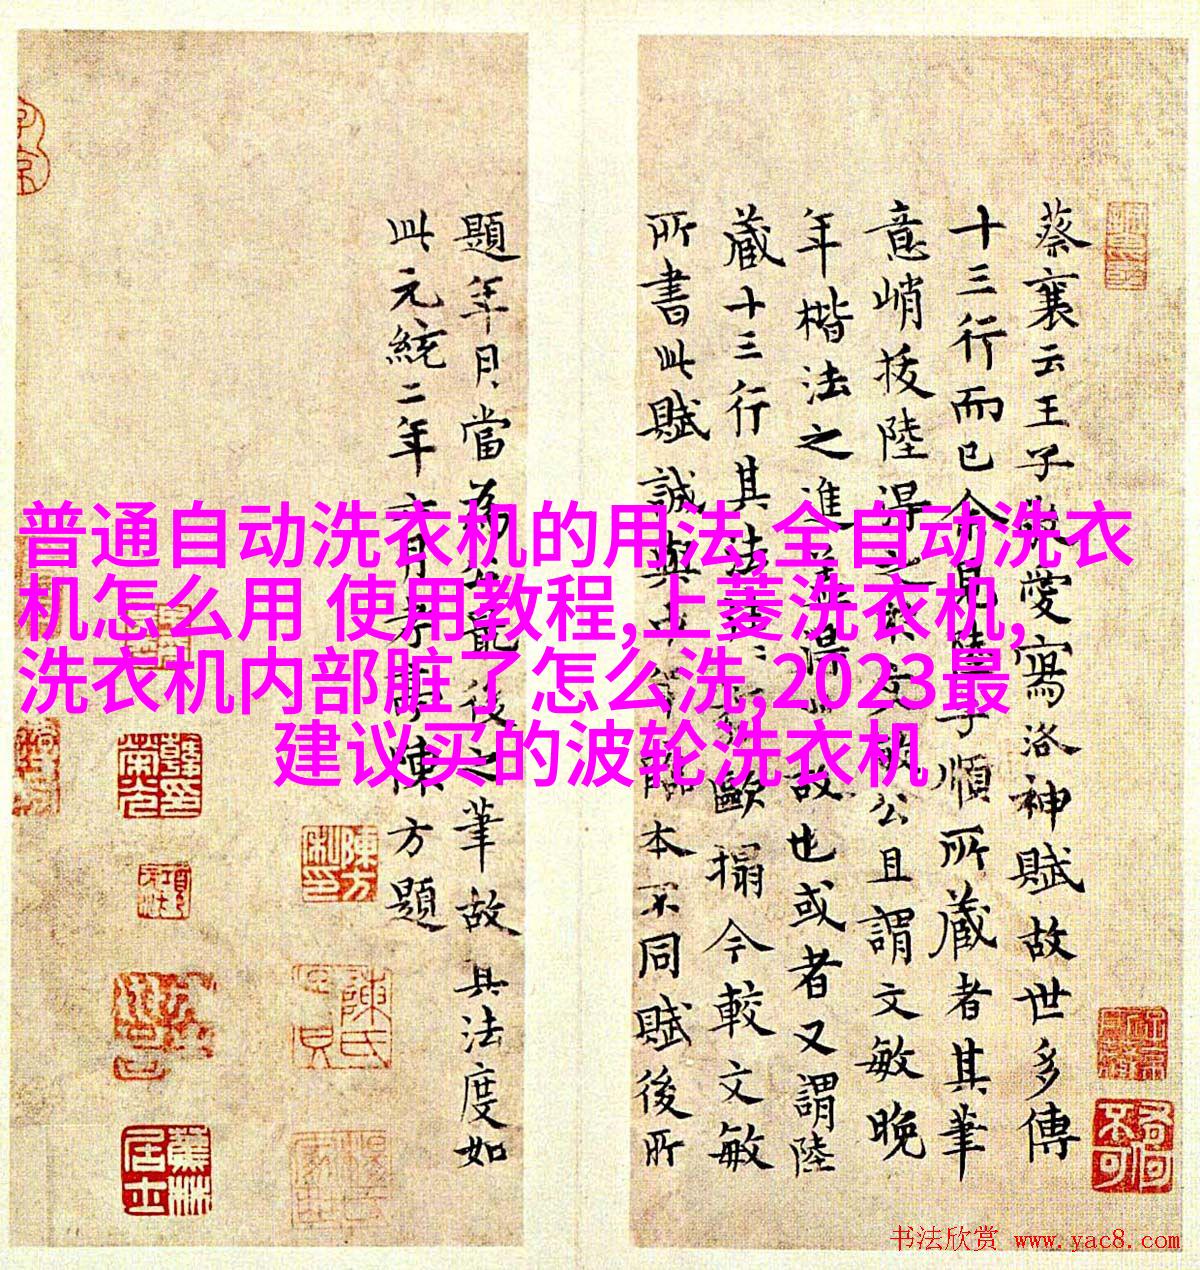 普通自动洗衣机的用法,全自动洗衣
机怎么用 使用教程,上菱洗衣机,
洗衣机内部脏了怎么洗,2023最
建议买的波轮洗衣机
蔡襄云王子敬愛寫洛神賦故世多傳
十三行而已今見陸子順所藏者其筆
意峭拔陸得之於文敏公且謂文敏晚
年楷法之進蓋得此故也或者又謂陸
藏十三行其法歐搨今較文敏
所書此賦誠與中臨本不同賦後所
題年月當為最後之筆故其法度如
此元統二年六月陳方題
書法欣赏 www.yac8.com